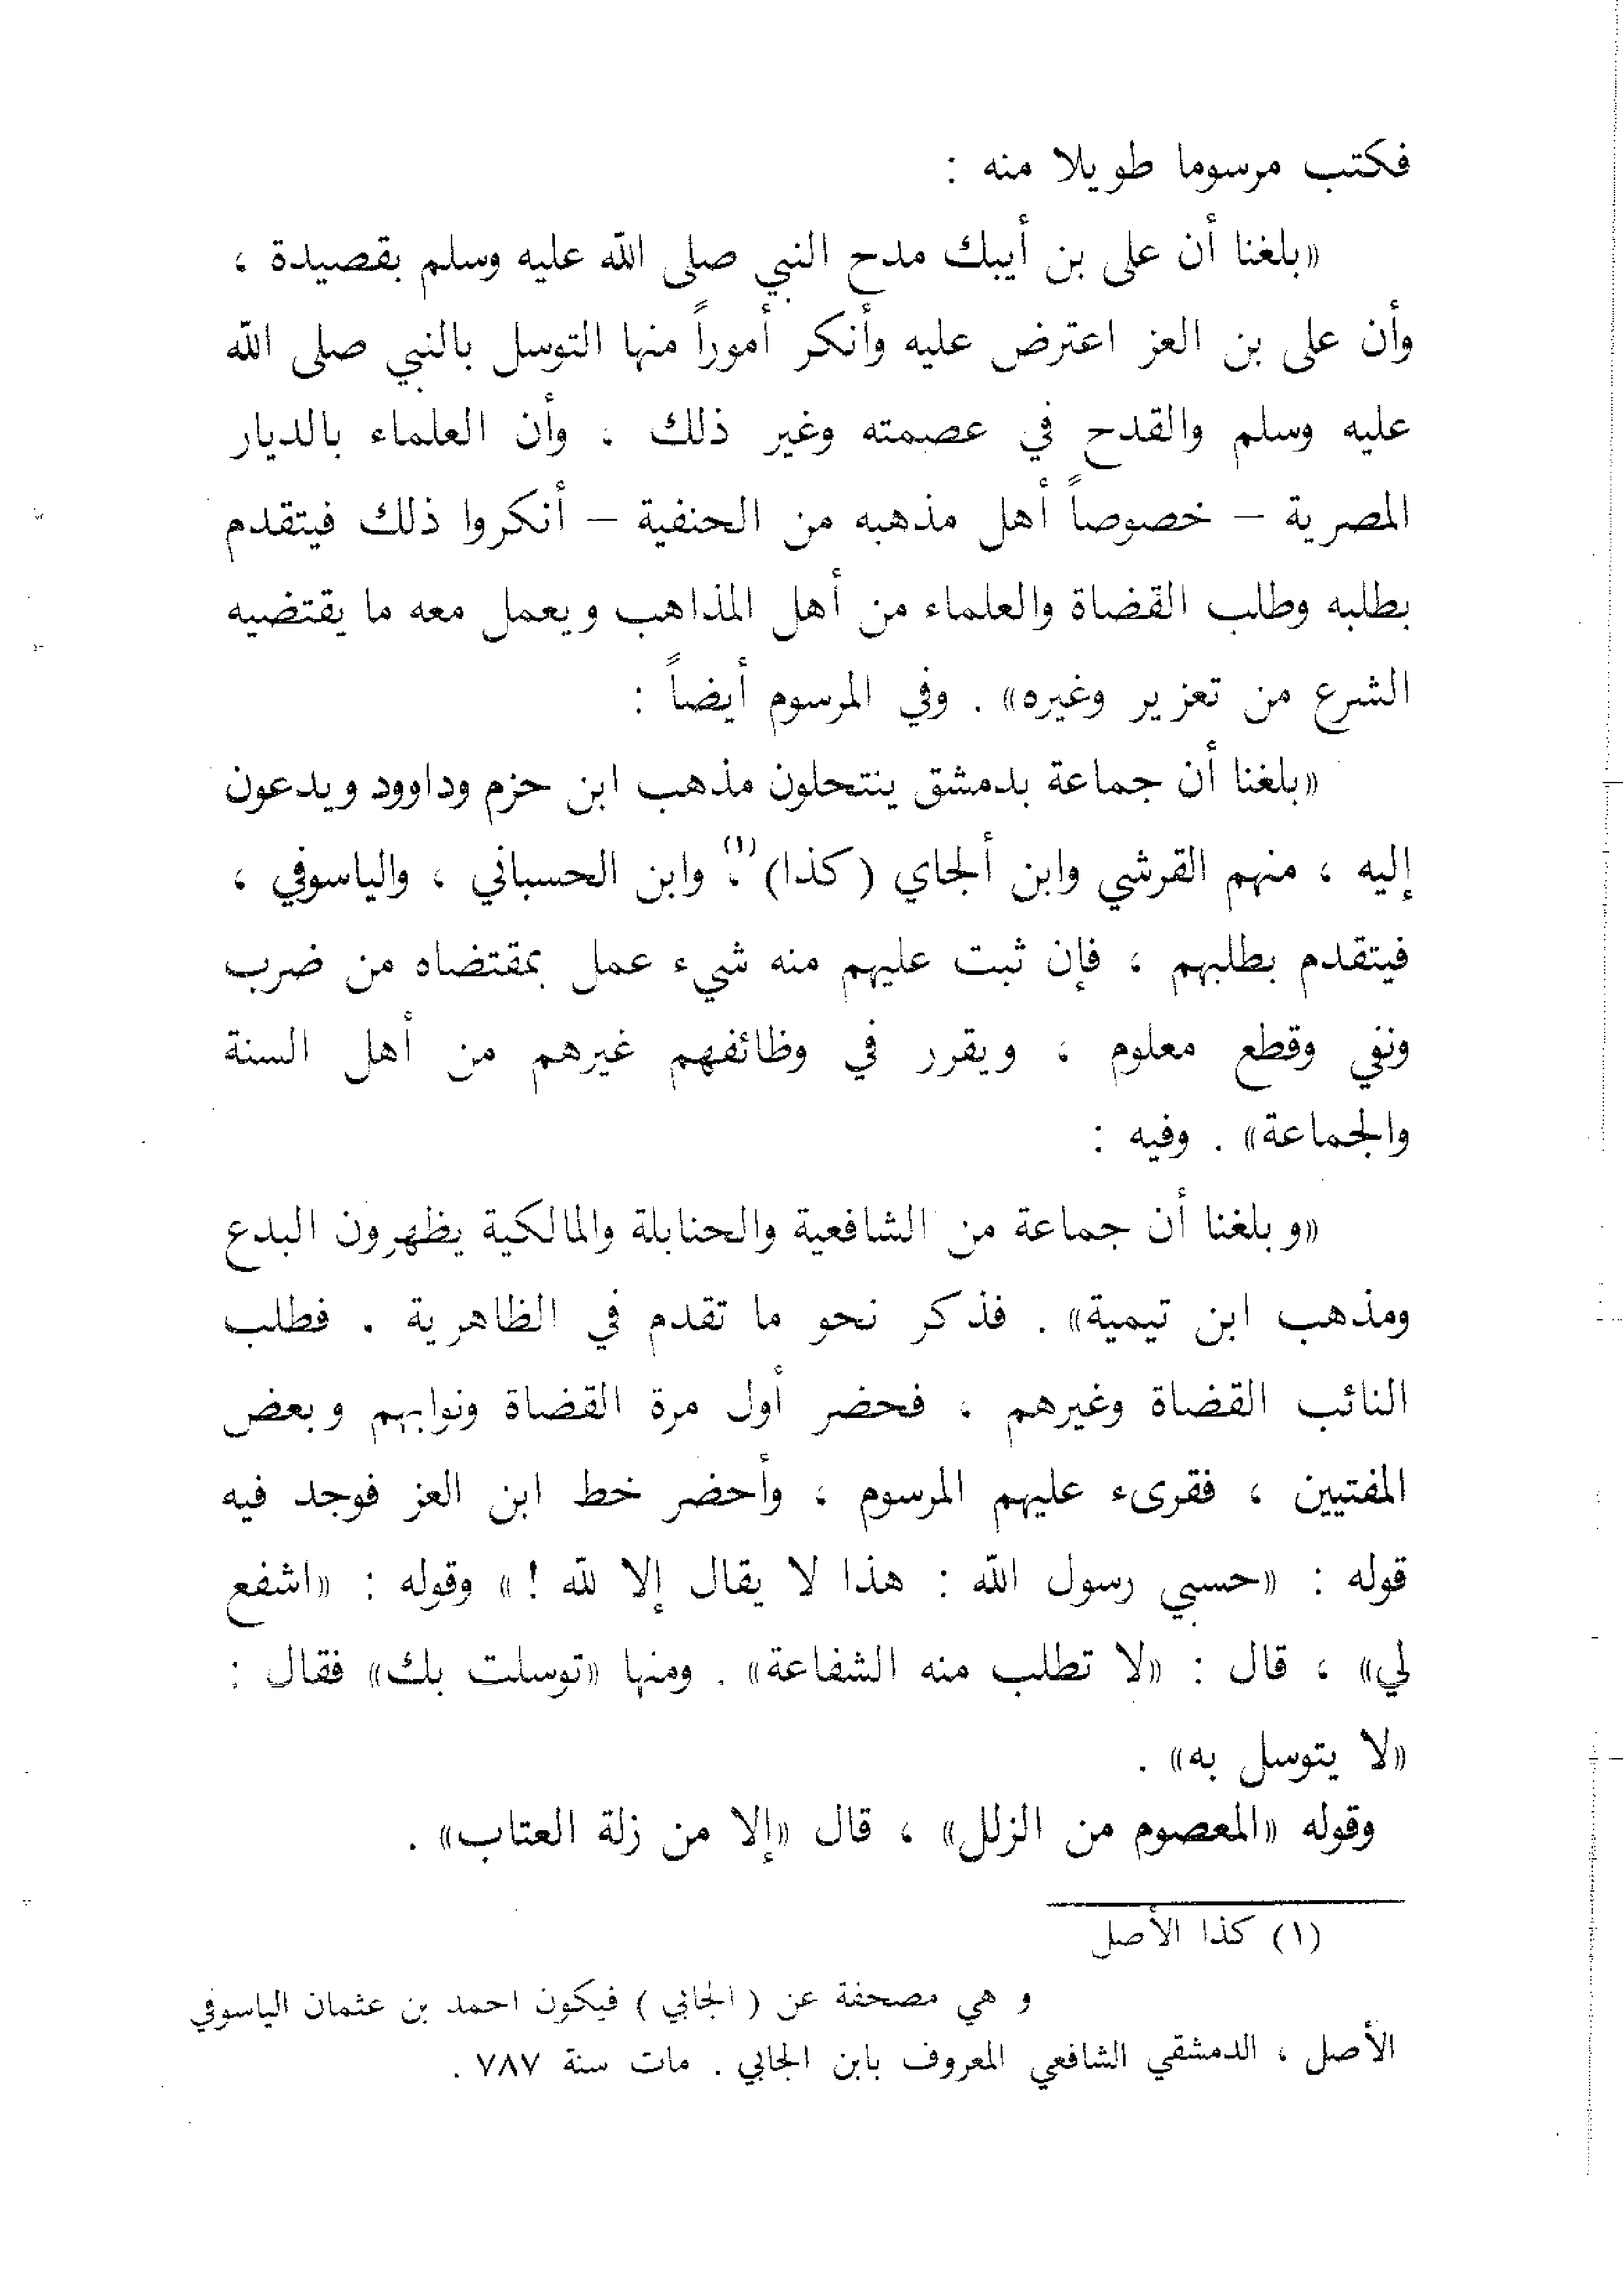 فكتب مرسوما طويلا منه :
«بلغنا أن على بن أيبك مدح النبي صلى الله عليه وسلم بقصيدة ،
وأن على بن العز اعترض عليه وأنكر أموراً منها التوسل بالنبي صلى الله
عليه وسلم والقدح في عصمته وغير ذلك ، وأن العلماء بالديار
المصرية – خصوصاً أهل مذهبه من الحنفية – أنكروا ذلك فيتقدم
بطلبه وطلب القضاة والعلماء من أهل المذاهب ويعمل معه ما يقتضيه
الشرع من تعزير وغيره» . وفي المرسوم أيضاً :
«بلغنا أن جماعة بدمشق ينتحلون مذهب ابن حزم وداوود ويدعون
إليه ، منهم القرشي وابن ألجاي (كذا)(١) ، وابن الحسباني ، والياسوفي ،
فيتقدم بطلبهم ، فإن ثبت عليهم منه شيء عمل بمقتضاه من ضرب
ونفي وقطع معلوم ، ويقرر في وظائفهم غيرهم من أهل السنة
والجماعة» . وفيه :
«وبلغنا أن جماعة من الشافعية والحنابلة والمالكية يظهرون البدع
ومذهب ابن تيمية» . فذكر نحو ما تقدم في الظاهرية . فطلب
النائب القضاة وغيرهم ، فحضر أول مرة القضاة ونوابهم وبعض
المفتيين ، فقرىء عليهم المرسوم ، وأحضر خط ابن العز فوجد فيه
قوله : «حسبي رسول الله : هذا لا يقال إلا لله !» وقوله : «اشفع
لي» ، قال : «لا تطلب منه الشفاعة» . ومنها «توسلت بك» فقال :
«لا يتوسل به» .
وقوله «المعصوم من الزلل» ، قال «إلا من زلة العتاب» .
(١) كذا الأصل
و هي مصحفة عن ( الجابي ) فيكون احمد بن عثمان الياسوفي
الأصل ، الدمشقي الشافعي المعروف بابن الجابي . مات سنة ٧٨٧ .